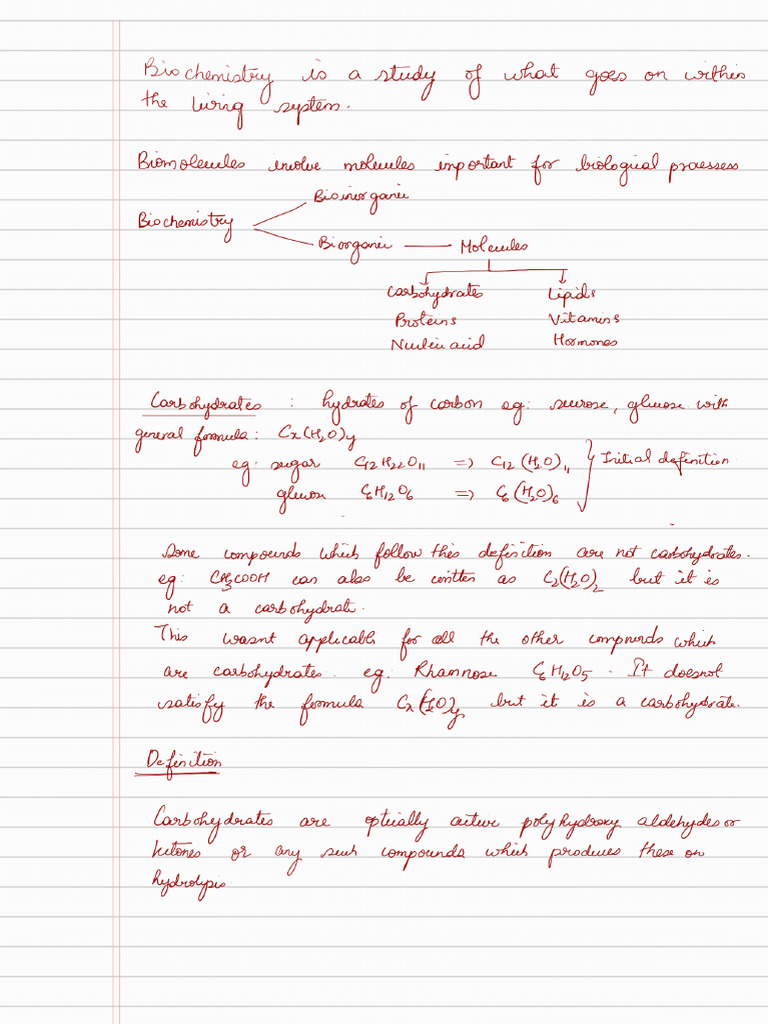 Biochemistry is a study of what goes on within
the living system.
Biomolecules involve molecules important for biological processess
Bioinorganic
Biochemistry
Biorganic — Molecules
Carbohydrates Lipids
Proteins Vitamins
Nucleic acid Hormones
Carbohydrates : hydrates of carbon eg: sucrose, glucose with
general formula: Cx(H2O)y
eg: sugar C12H22O11 => C12(H2O)11 } Initial definition
glucose C6H12O6 => C6(H2O)6
Some compounds which follow this definition are not carbohydrates.
eg: CH3COOH can also be written as C2(H2O)2 but it is
not a carbohydrate.
This wasnt applicable for all the other compounds which
are carbohydrates. eg. Rhamnose C6H12O5. It doesnot
satisfy the formula Cx(H2O)y but it is a carbohydrate.
Definition
Carbohydrates are optically active polyhydroxy aldehydes or
ketones or any such compounds which produces these on
hydrolysis